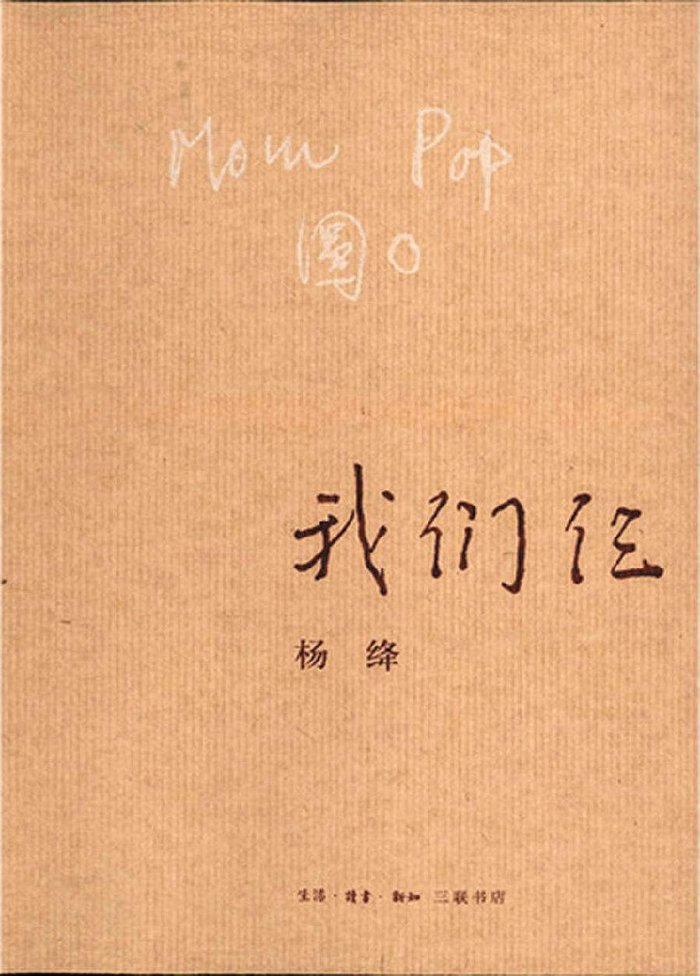 Mom Pop
圓O
我们仨
杨绛
生活·讀書·新知 三联书店